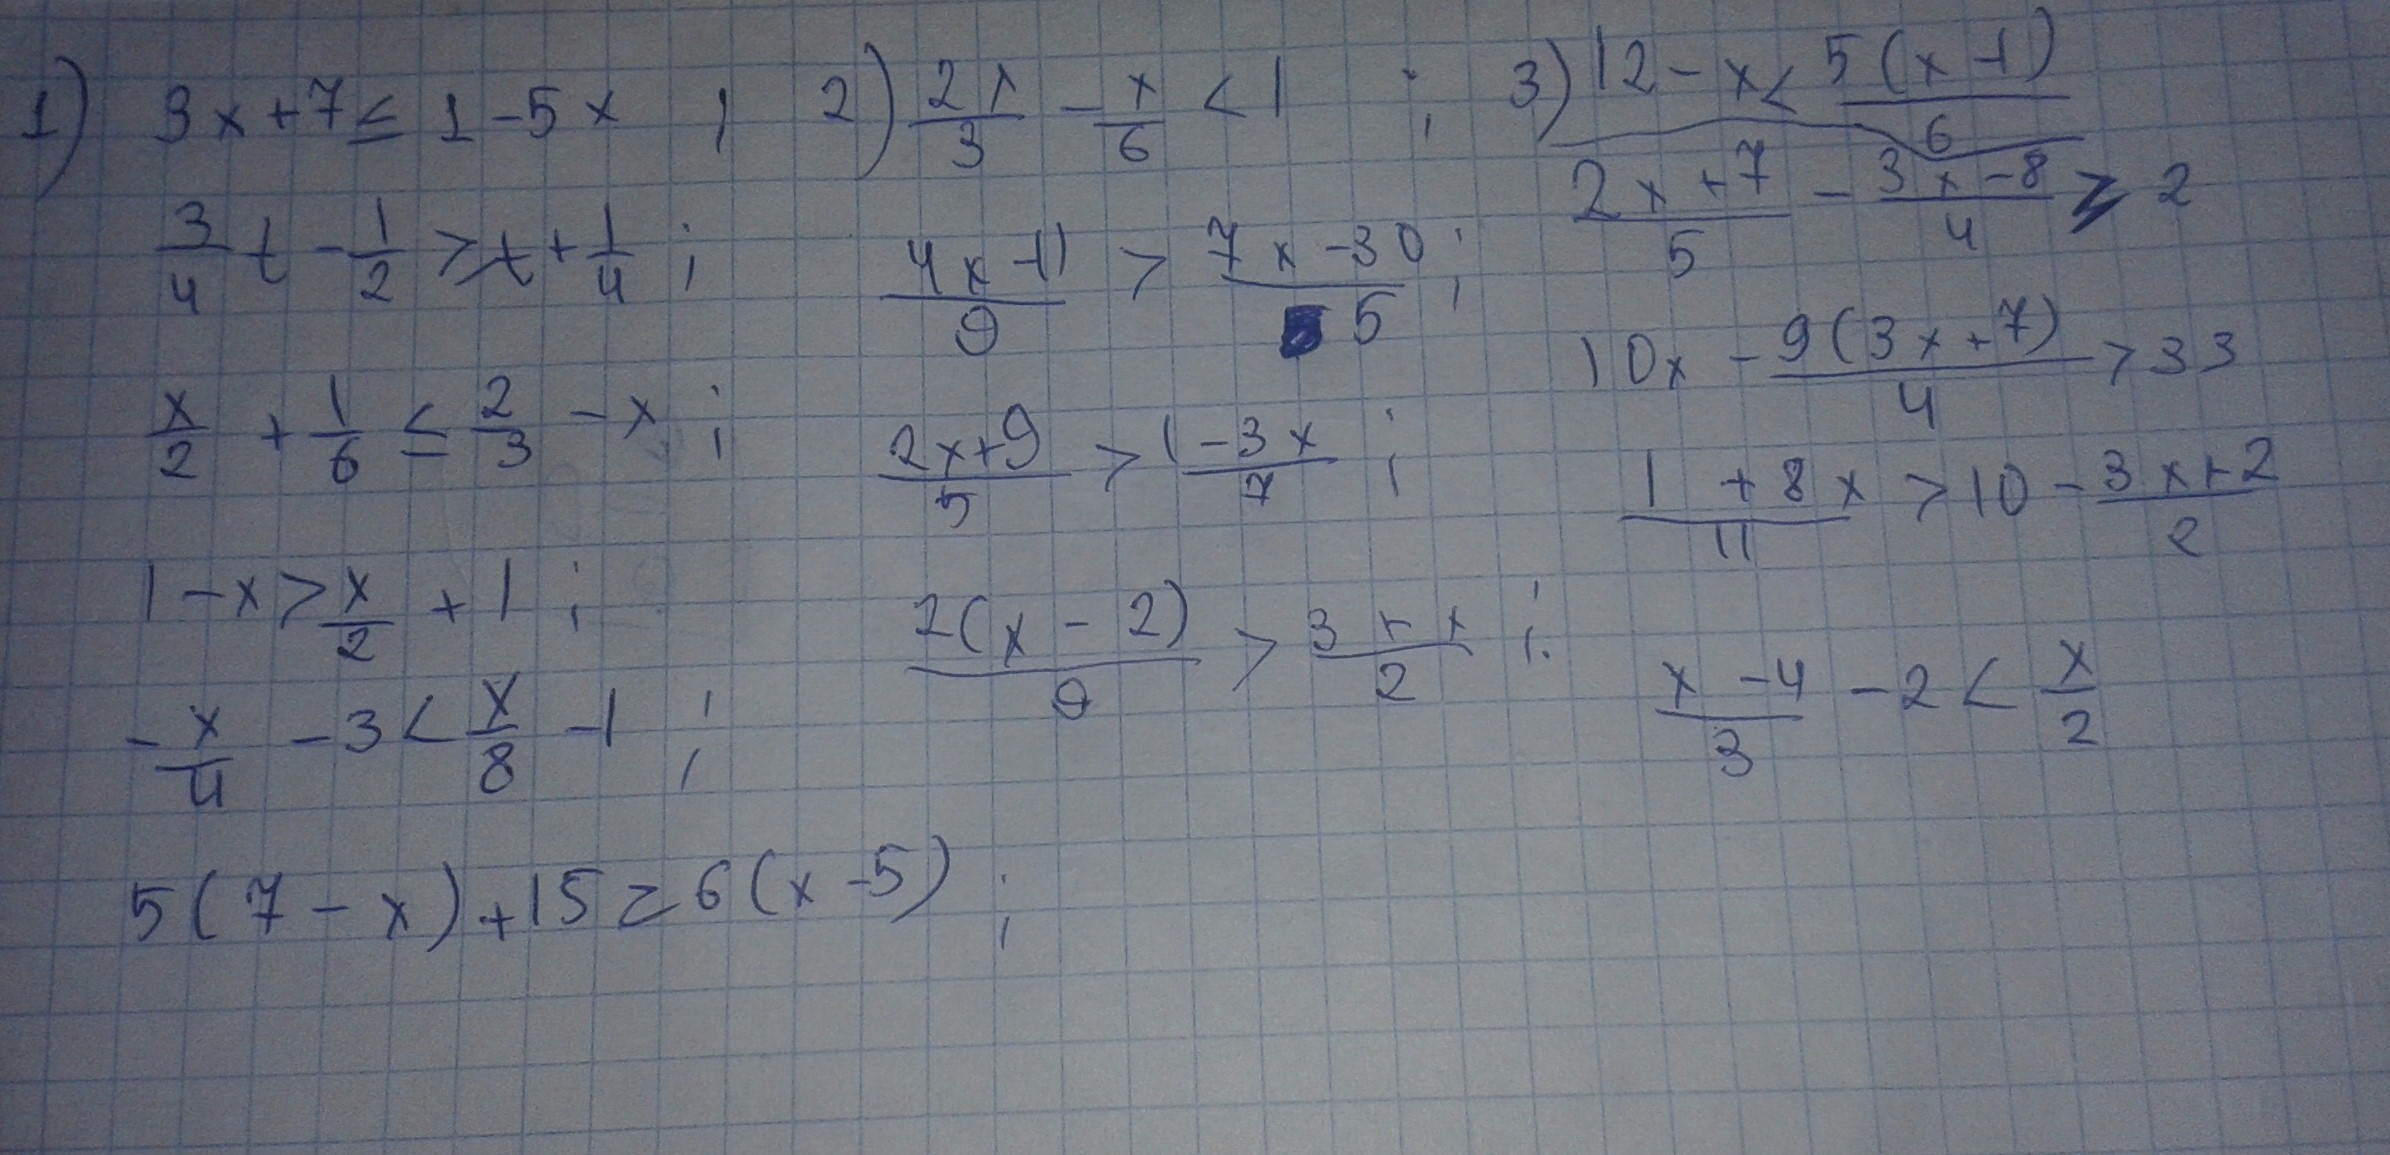 1) 3x+7≤1-5x ;
3/4 t - 1/2 > t + 1/4 ;
x/2 + 1/6 ≤ 2/3 - x ;
1-x > x/2 + 1 ;
-x/4 - 3 < x/8 - 1 ;
5(7-x)+15≥6(x-5) ;
2) 2x/3 - x/6 < 1 ;
(4x-11)/9 > (7x-30)/5 ;
(2x+9)/5 > (1-3x)/7 ;
2(x-2)/9 > (3+x)/2 ;
3) 12-x < 5(x-1)/6
(2x+7)/5 - (3x-8)/4 ≥ 2
10x - 9(3x+7)/4 > 33
(1+8x)/11 > 10 - (3x+2)/2
(x-4)/3 - 2 < x/2